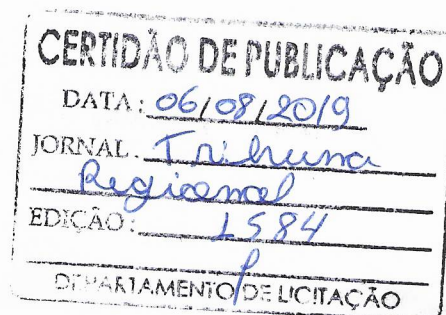 CERTIDÃO DE PUBLICAÇÃO
DATA: 06/08/2019
JORNAL Tribuna
Regional
EDIÇÃO: 1584
DEPARTAMENTO DE LICITAÇÃO